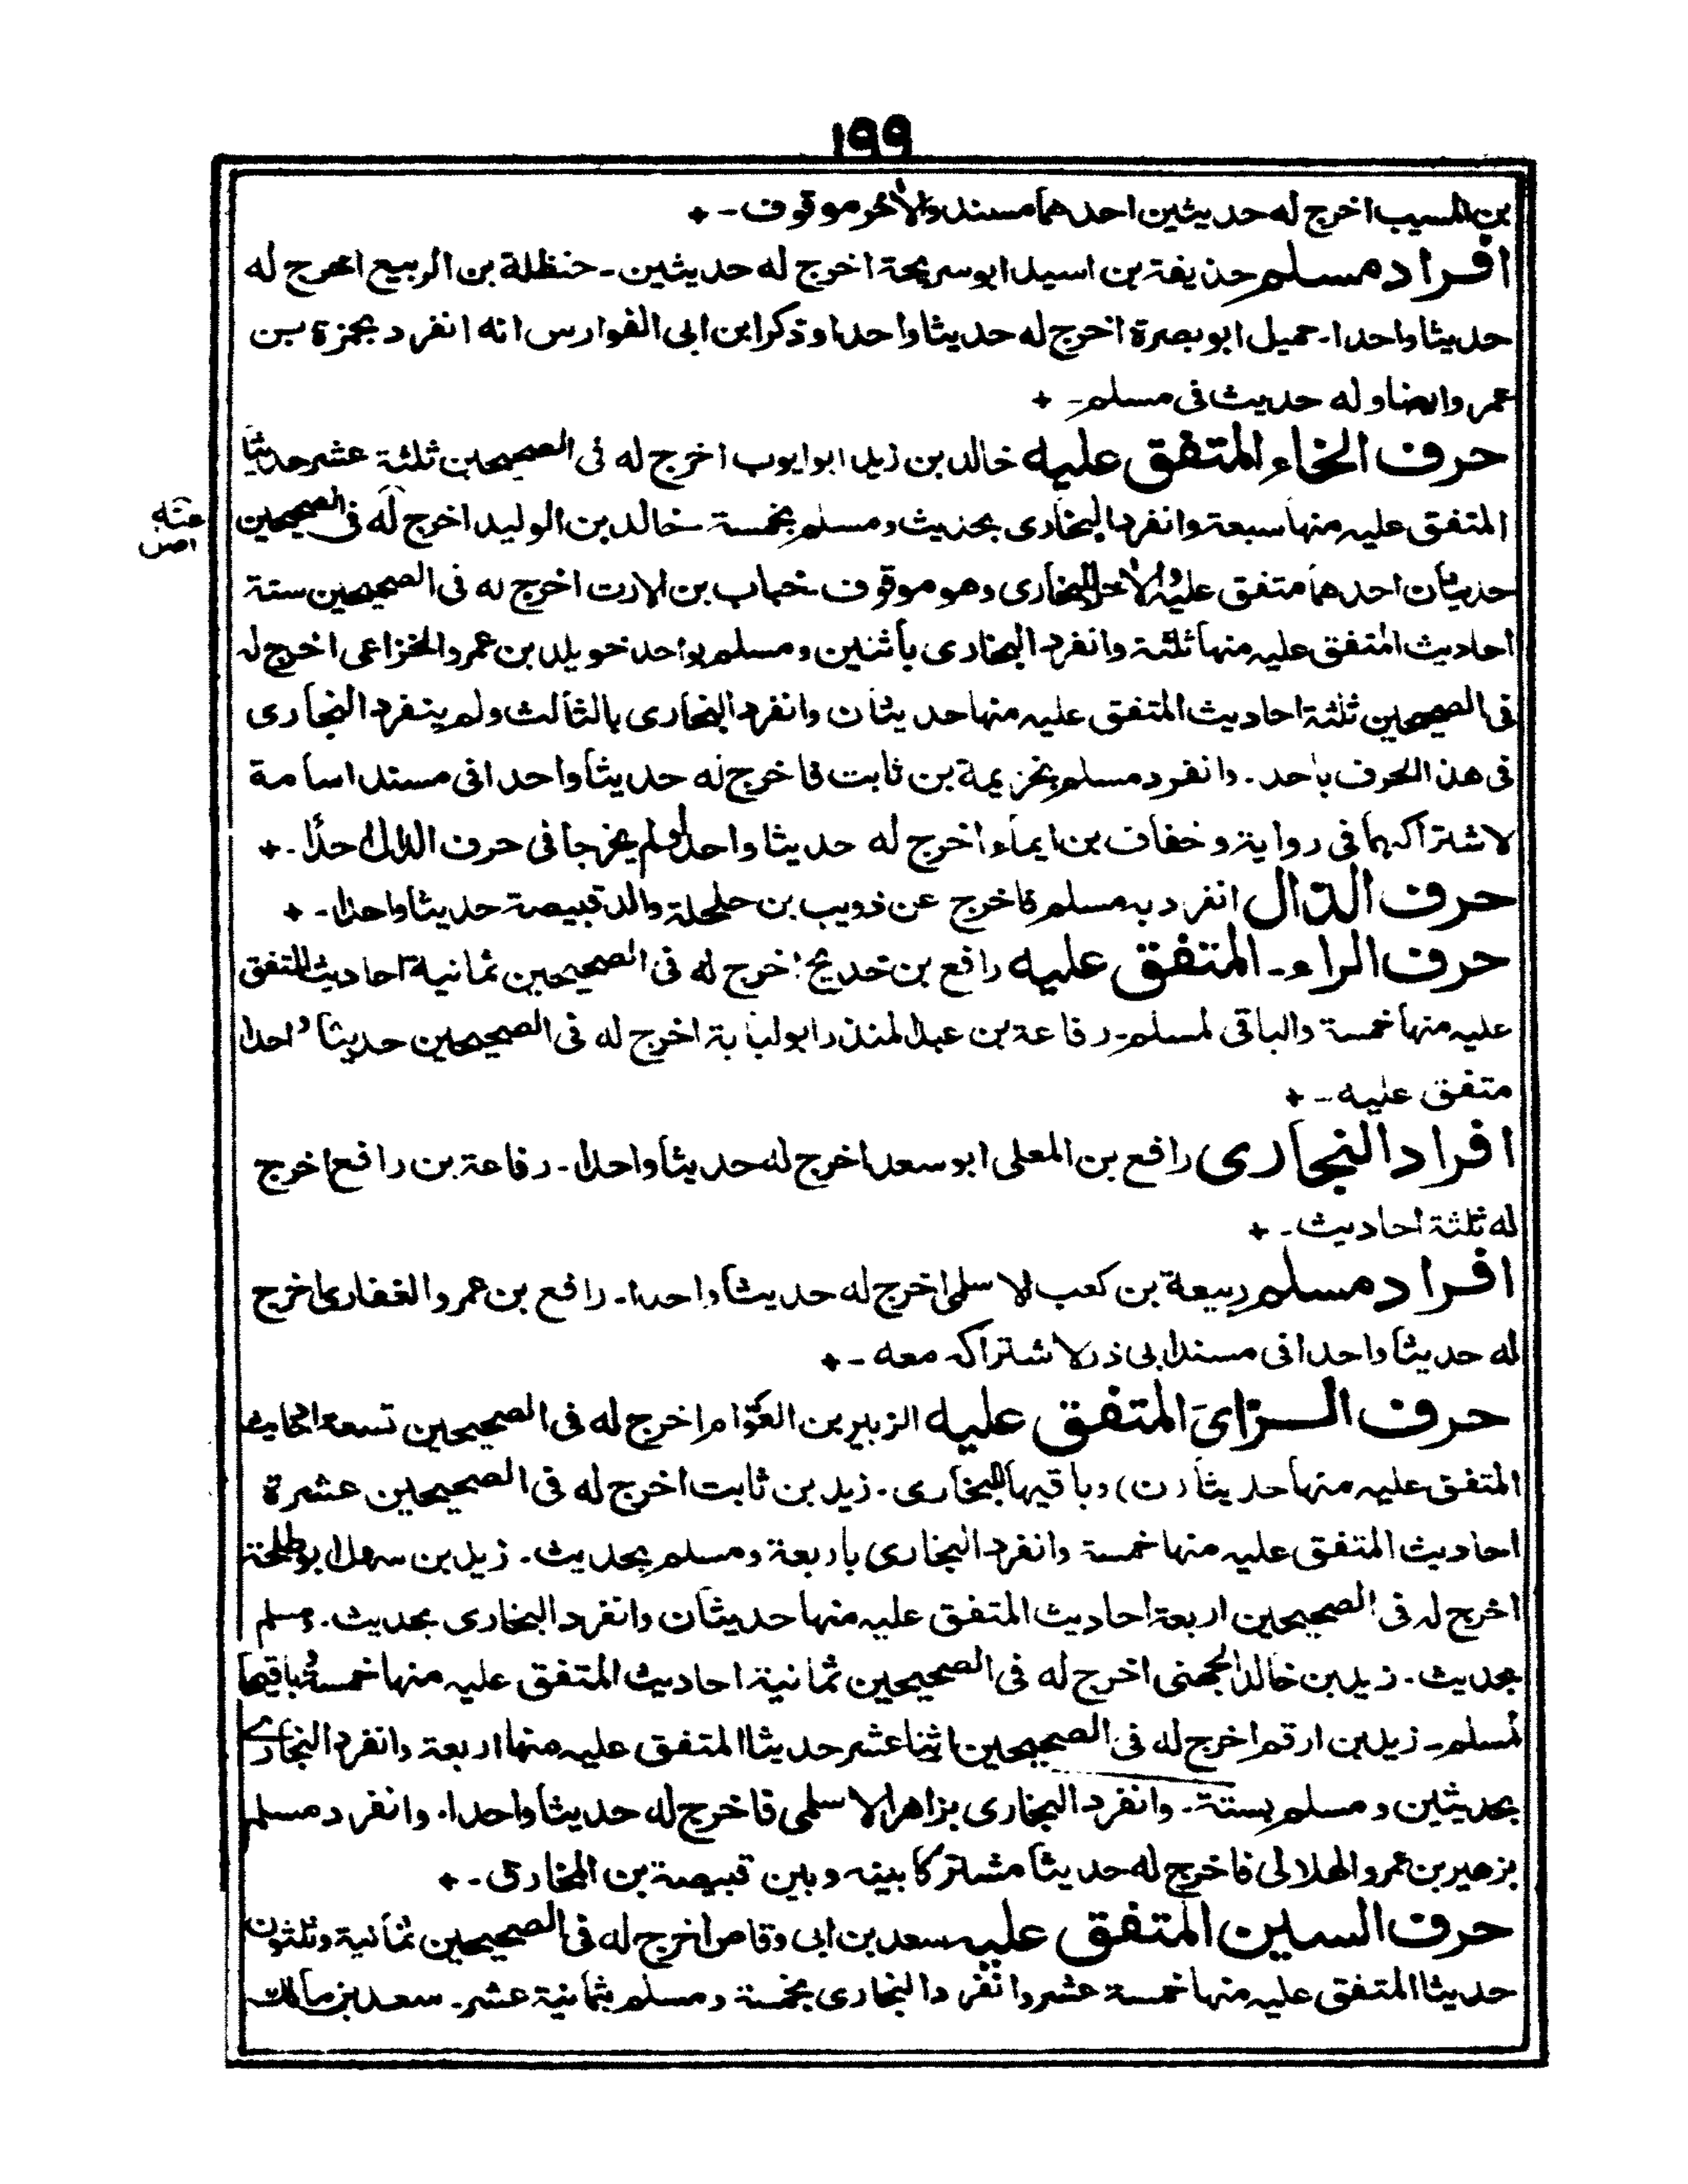 ١٩٩
بن المسيب اخرج له حديثين احدهما مسند والآخر موقوف ـ +
افراد مسلم حذيفة بن اسيد ابو سريحة اخرج له حديثين ـ حنظلة بن الربيع اخرج له
حديثا واحدا ـ حميل ابو بصرة اخرج له حديثا واحدا وذكر ابن ابى الفوارس انه انفرد بحمزة بن
عمرو ايضا وله حديث فى مسلم ـ +
حرف الخاء المتفق عليه خالد بن زيد ابو ايوب اخرج له فى الصحيحين ثلثة عشر حديثا
المتفق عليه منها سبعة وانفرد البخارى بحديث ومسلم بخمسة ـ خالد بن الوليد اخرج له فى الصحيحين
عنه
حديثان احدهما متفق عليه والآخر للبخارى وهو موقوف ـ خباب بن الارت اخرج له فى الصحيحين ستة
احاديث المتفق عليه منها ثلثة وانفرد البخارى باثنين ومسلم بواحد خويلد بن عمرو الخزاعى اخرج له
فى الصحيحين ثلثة احاديث المتفق عليه منها حديثان وانفرد البخارى بالثالث ولم ينفرد البخارى
فى هذا الحرف باحد ـ وانفرد مسلم بخزيمة بن ثابت فاخرج له حديثا واحدا فى مسند اسامة
لاشتراكهما فى رواية وخفاف بن ايماء اخرج له حديثا واحدا ولم يخرجا فى حرف الدال احدا ـ +
حرف الذال انفرد به مسلم فاخرج عن ذويب بن حلحلة والد قبيصة حديثا واحدا ـ +
حرف الراء ـ المتفق عليه رافع بن خديج اخرج له فى الصحيحين ثمانية احاديث المتفق
عليه منها خمسة والباقى لمسلم ـ رفاعة بن عبد المنذر ابو لبابة اخرج له فى الصحيحين حديثا واحدا
متفق عليه ـ +
افراد البخارى رافع بن المعلى ابو سعد اخرج له حديثا واحدا ـ رفاعة بن رافع اخرج
له ثلثة احاديث ـ +
افراد مسلم ربيعة بن كعب الاسلمى اخرج له حديثا واحدا ـ رافع بن عمرو الغفارى اخرج
له حديثا واحدا فى مسند ابى ذر لاشتراكه معه ـ +
حرف الزاى المتفق عليه الزبير بن العوّام اخرج له فى الصحيحين تسعة احاديث
المتفق عليه منها حديثا (ن) وباقيها للبخارى ـ زيد بن ثابت اخرج له فى الصحيحين عشرة
احاديث المتفق عليه منها خمسة وانفرد البخارى باربعة ومسلم بحديث ـ زيد بن سهل ابو طلحة
اخرج له فى الصحيحين اربعة احاديث المتفق عليه منها حديثان وانفرد البخارى بحديث ـ ومسلم
بحديث ـ زيد بن خالد الجهنى اخرج له فى الصحيحين ثمانية احاديث المتفق عليه منها خمسة وباقيها
لمسلم ـ زيد بن ارقم اخرج له فى الصحيحين اثنا عشر حديثا المتفق عليه منها اربعة وانفرد البخارى
بحديثين ومسلم بستة ـ وانفرد البخارى بزاهر الاسلمى فاخرج له حديثا واحدا ـ وانفرد مسلم
بزهير بن عمرو الهلالى فاخرج له حديثا مشتركا بينه وبين قبيصة بن المخارق ـ +
حرف السين المتفق عليه سعد بن ابى وقاص اخرج له فى الصحيحين ثمانية وثلثون
حديثا المتفق عليه منها خمسة عشر وانفرد البخارى بخمسة ومسلم بثمانية عشر ـ سعد بن مالك